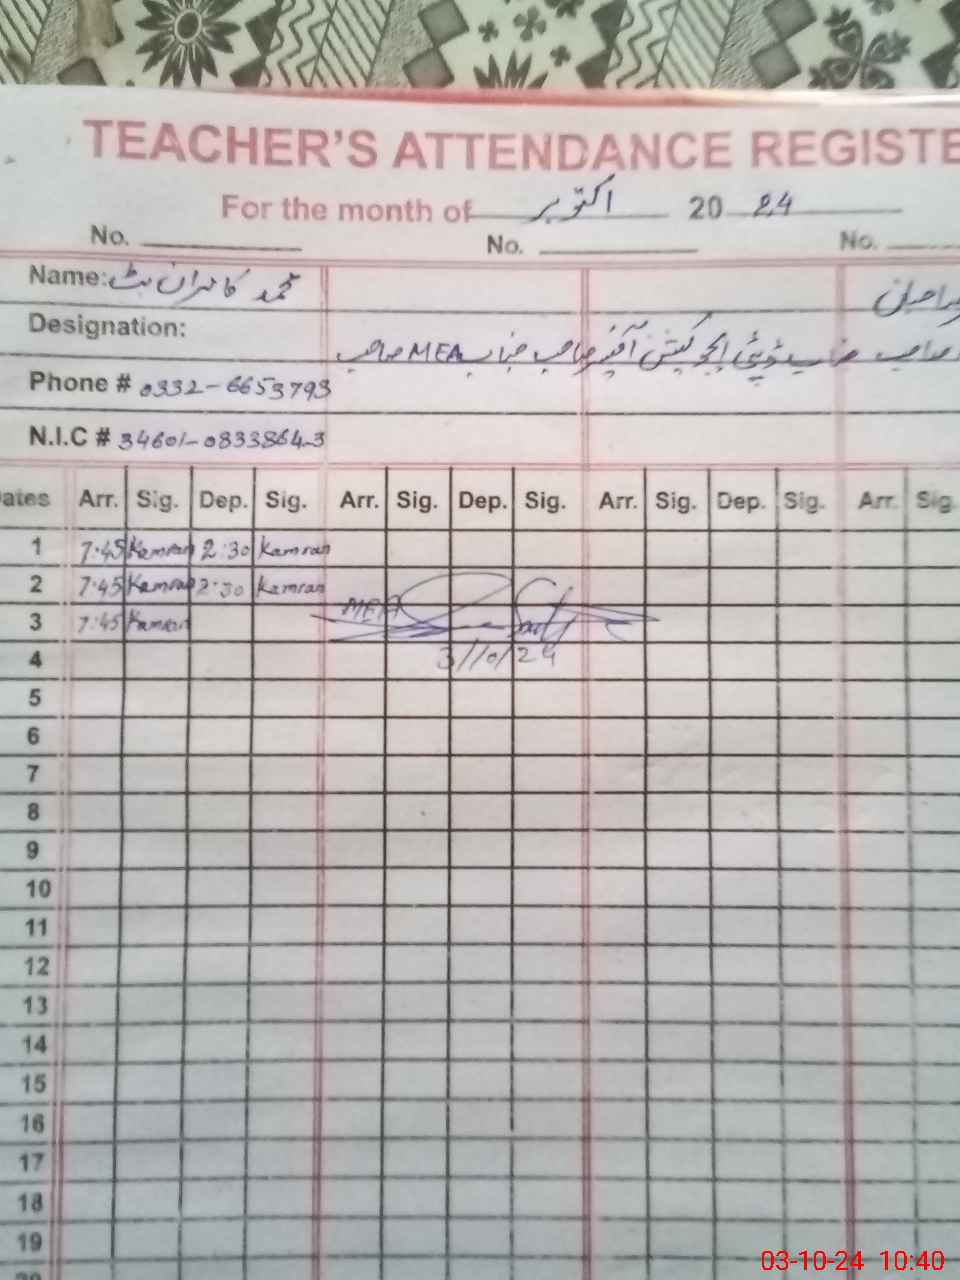 TEACHER'S ATTENDANCE REGISTE
For the month of اکتوبر 20 24
No. No. No.
Name: محمد کامران بٹ
Designation:
جناب ڈپٹی ایجوکیشن آفیسر صاحب جناب MEA صاحب
Phone # 0332-6653793
N.I.C # 34601-0833864-3
Dates Arr. Sig. Dep. Sig. Arr. Sig. Dep. Sig. Arr. Sig. Dep. Sig. Arr. Sig
1 7:45 Kamran 2:30 Kamran
2 7:45 Kamran 2:30 Kamran
MEA
3 7:45 Kamran
3/10/24
4
5
6
7
8
9
10
11
12
13
14
15
16
17
18
19
20
03-10-24 10:40